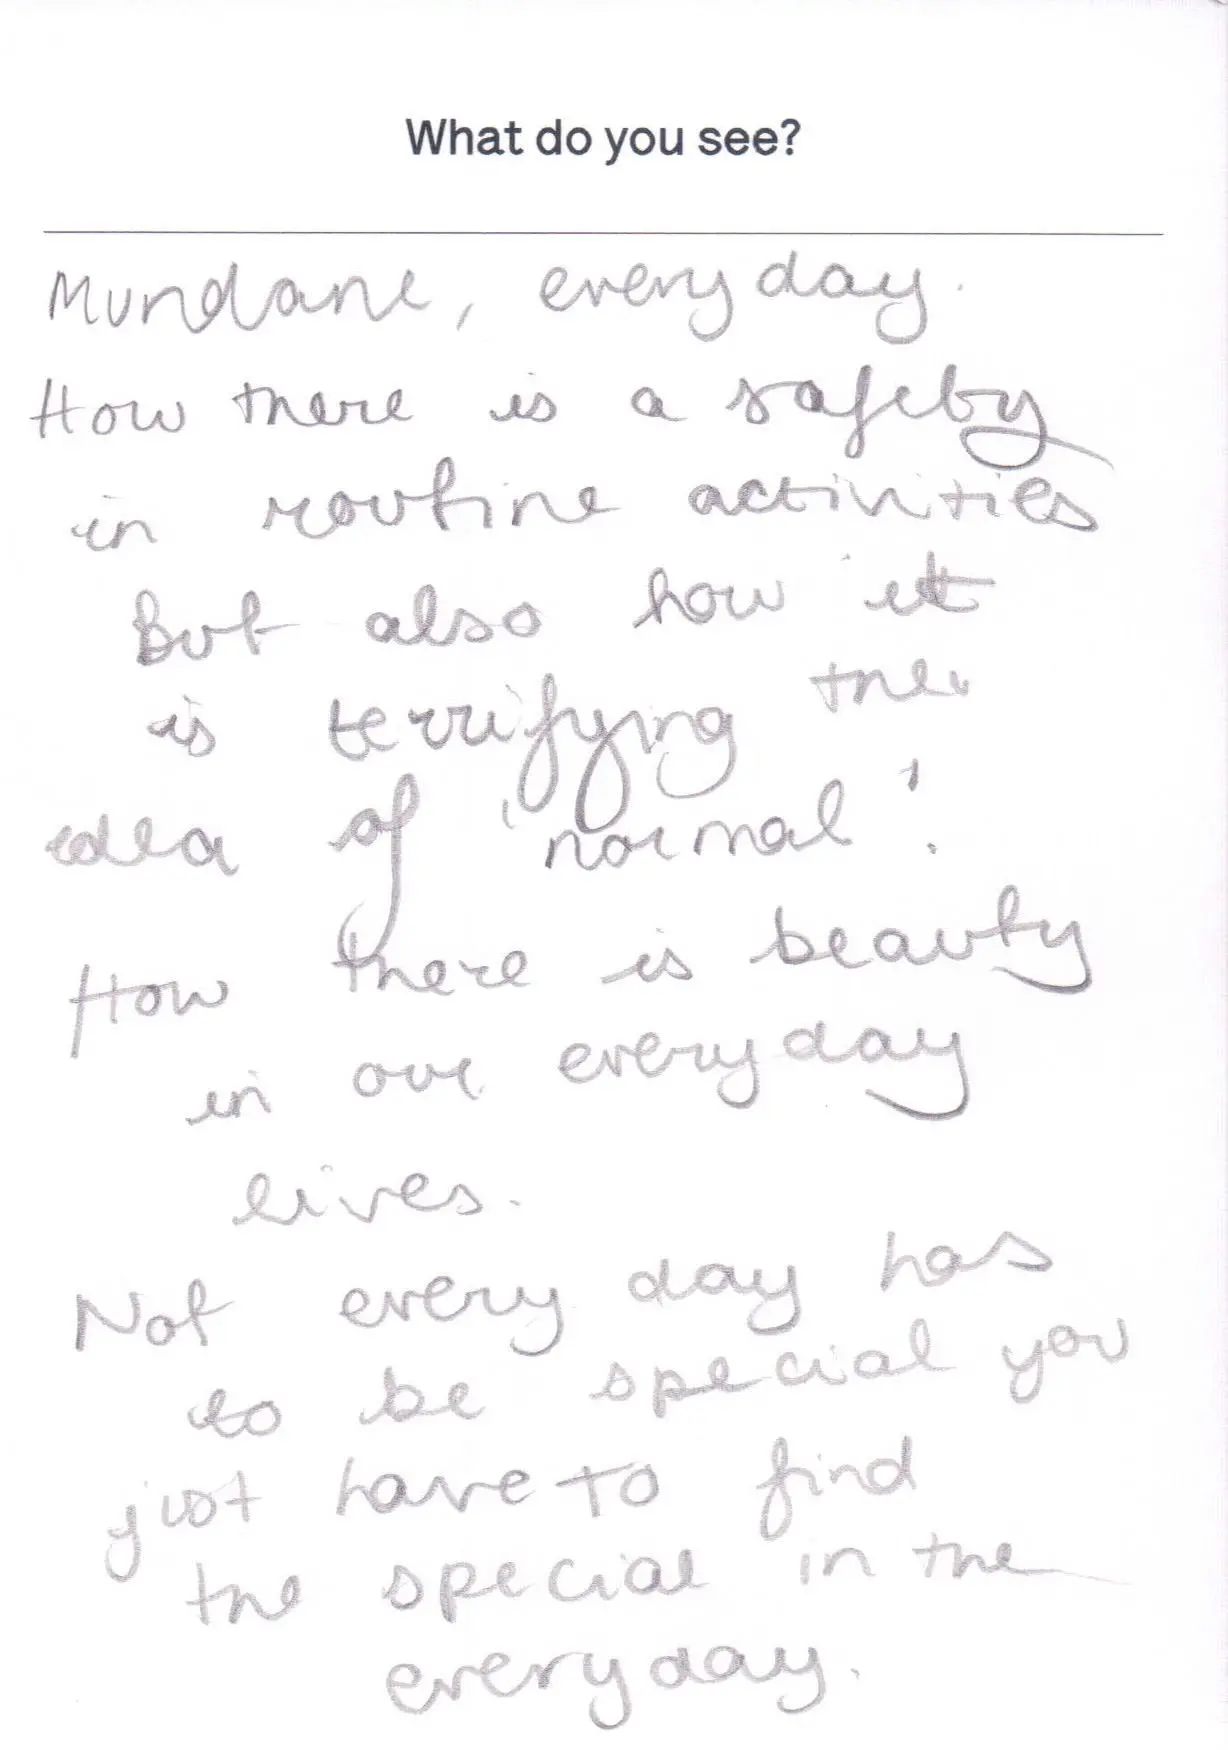 What do you see?
Mundane, everyday.
How there is a safety
in routine activities
But also how it
is terrifying the
idea of 'normal'.
How there is beauty
in our everyday
lives.
Not every day has
to be special you
just have to find
the special in the
everyday.